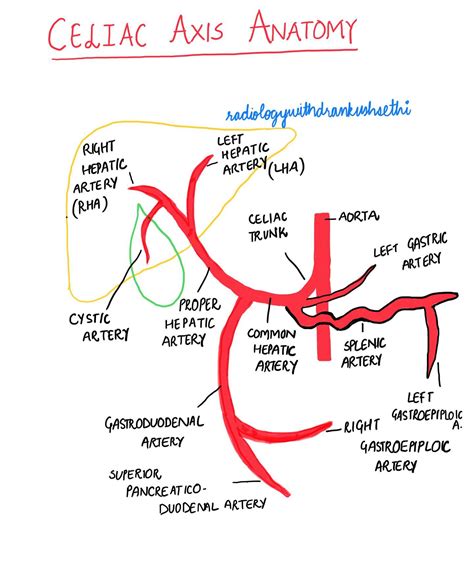 CELIAC AXIS ANATOMY
radiologywithdrankushsethi
RIGHT
HEPATIC
ARTERY
(RHA)
LEFT
HEPATIC
ARTERY
(LHA)
CELIAC
TRUNK
AORTA
LEFT GASTRIC
ARTERY
CYSTIC
ARTERY
PROPER
HEPATIC
ARTERY
COMMON
HEPATIC
ARTERY
SPLENIC
ARTERY
LEFT
GASTROEPIPLOIC
A.
GASTRODUODENAL
ARTERY
RIGHT
GASTROEPIPLOIC
ARTERY
SUPERIOR
PANCREATICO-
DUODENAL ARTERY